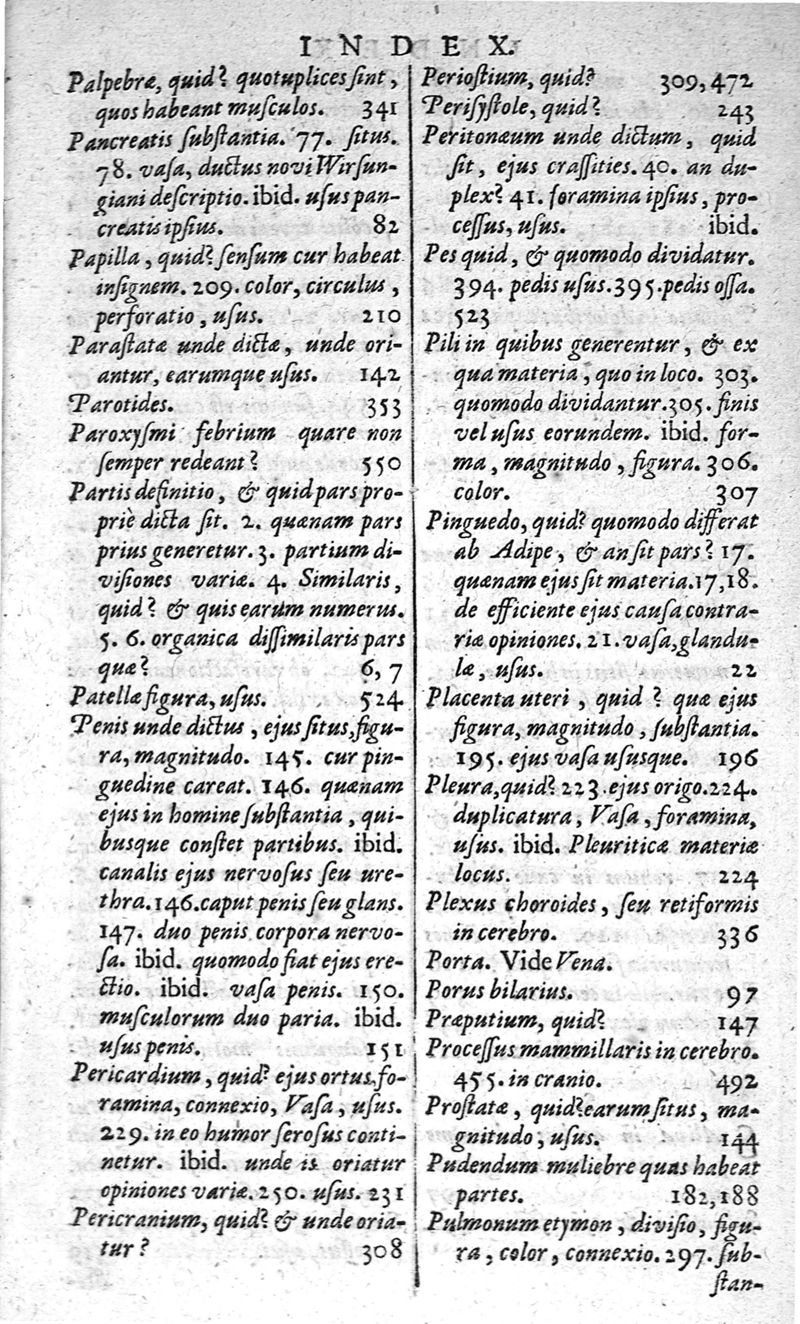 INDEX.
Palpebræ, quid? quotuplices ſint,
quos habeant muſculos. 341
Pancreatis ſubſtantia. 77. ſitus.
78. vaſa, ductus novi Wirſun-
giani deſcriptio. ibid. uſus pan-
creatis ipſius. 82
Papilla, quid? ſenſum cur habeat
inſignem. 209. color, circulus,
perforatio, uſus. 210
Paraſtatæ unde dictæ, unde ori-
antur, earumque uſus. 142
Parotides. 353
Paroxyſmi febrium quare non
ſemper redeant? 550
Partis definitio, & quid pars pro-
priè dicta ſit. 2. quænam pars
prius generetur. 3. partium di-
viſiones variæ. 4. Similaris,
quid? & quis earum numerus.
5. 6. organica diſſimilaris pars
quæ? 6, 7
Patellæ figura, uſus. 524
Penis unde dictus, ejus ſitus, figu-
ra, magnitudo. 145. cur pin-
guedine careat. 146. quænam
ejus in homine ſubſtantia, qui-
busque conſtet partibus. ibid.
canalis ejus nervoſus ſeu ure-
thra. 146. caput penis ſeu glans.
147. duo penis corpora nervo-
ſa. ibid. quomodo fiat ejus ere-
ctio. ibid. vaſa penis. 150.
muſculorum duo paria. ibid.
uſus penis. 151
Pericardium, quid? ejus ortus, fo-
ramina, connexio, Vaſa, uſus.
229. in eo humor ſeroſus conti-
netur. ibid. unde is oriatur
opiniones variæ. 250. uſus. 231
Pericranium, quid? & unde oria-
tur? 308
Perioſtium, quid? 309, 472
Periſyſtole, quid? 243
Peritonæum unde dictum, quid
ſit, ejus craſſities. 40. an du-
plex? 41. foramina ipſius, pro-
ceſſus, uſus. ibid.
Pes quid, & quomodo dividatur.
394. pedis uſus. 395. pedis oſſa.
523
Pili in quibus generentur, & ex
qua materia, quo in loco. 303.
quomodo dividantur. 305. finis
vel uſus eorundem. ibid. for-
ma, magnitudo, figura. 306.
color. 307
Pinguedo, quid? quomodo differat
ab Adipe, & an ſit pars? 17.
quænam ejus ſit materia. 17, 18.
de efficiente ejus cauſa contra-
riæ opiniones. 21. vaſa, glandu-
læ, uſus. 22
Placenta uteri, quid? quæ ejus
figura, magnitudo, ſubſtantia.
195. ejus vaſa uſusque. 196
Pleura, quid? 223. ejus origo. 224.
duplicatura, Vaſa, foramina,
uſus. ibid. Pleuriticæ materiæ
locus. 224
Plexus choroides, ſeu retiformis
in cerebro. 336
Porta. Vide Vena.
Porus bilarius. 97
Præputium, quid? 147
Proceſſus mammillaris in cerebro.
455. in cranio. 492
Proſtatæ, quid? earum ſitus, ma-
gnitudo, uſus. 144
Pudendum muliebre quas habeat
partes. 182, 188
Pulmonum etymon, diviſio, figu-
ra, color, connexio. 297. ſub-
ſtan-